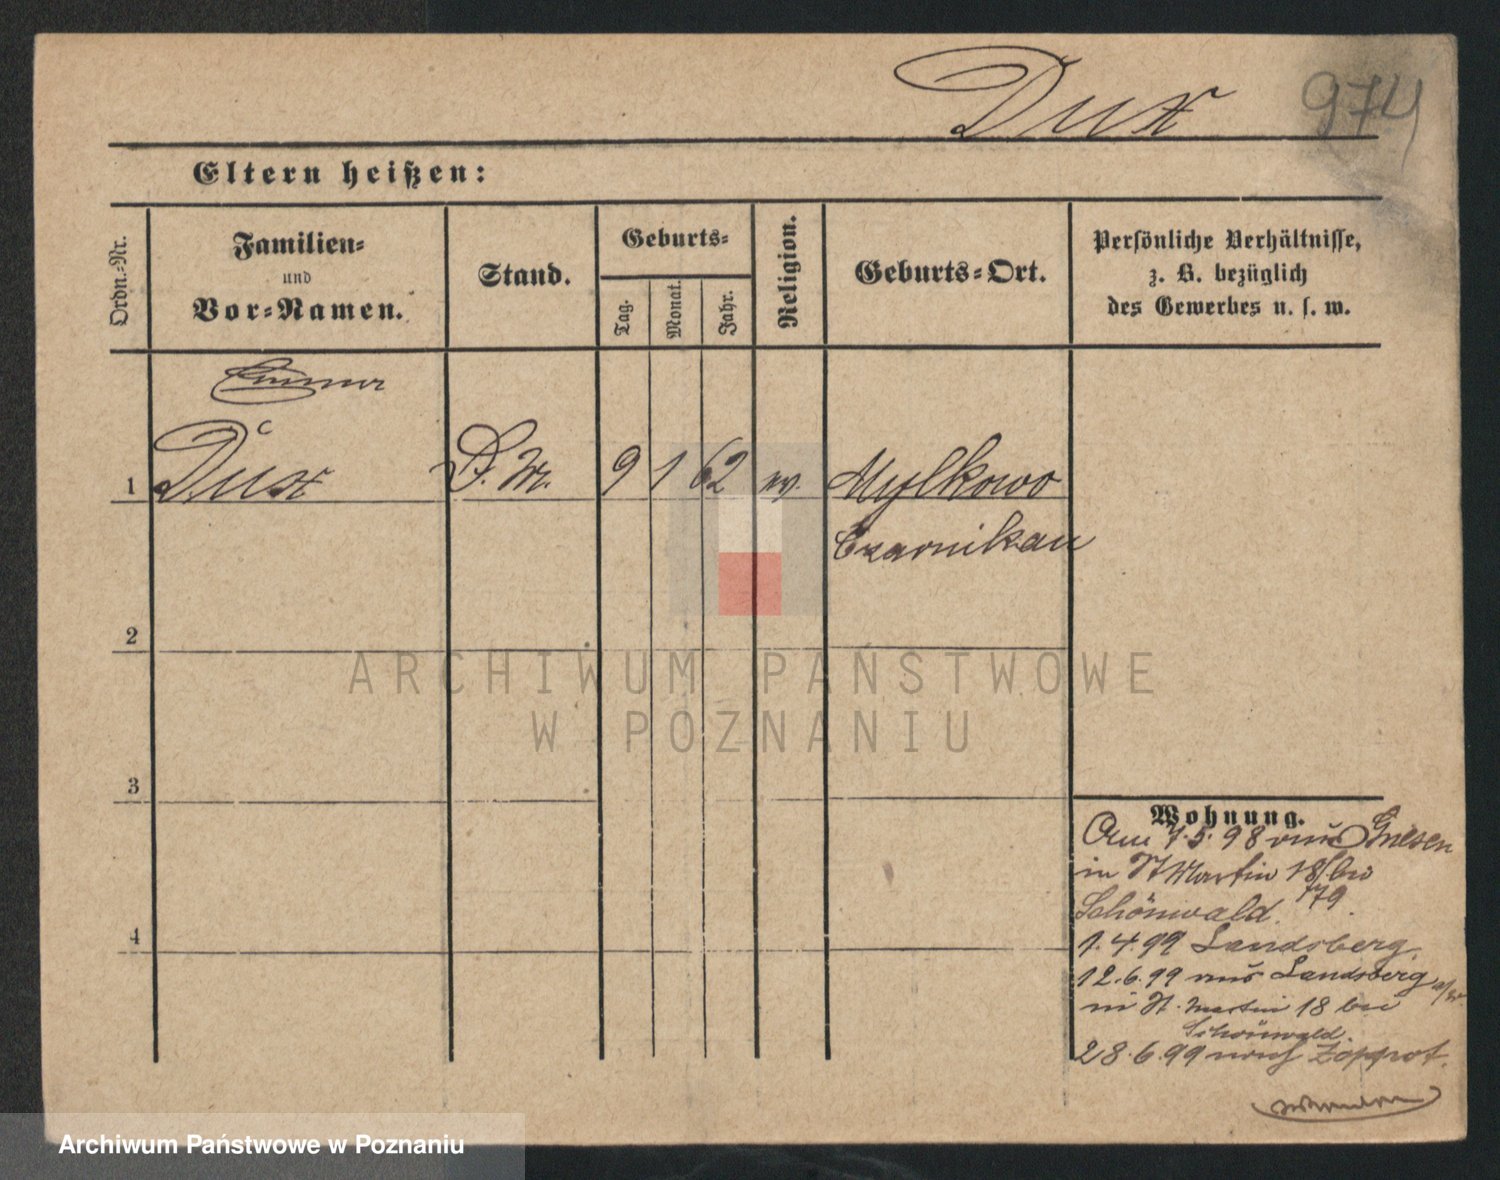 Dux 974
Eltern heißen:
Ordn.-Nr.
Familien-
und
Vor-Namen.
Stand.
Geburts-
Tag.
Monat.
Jahr.
Religion.
Geburts-Ort.
Persönliche Verhältnisse,
z. B. bezüglich
des Gewerbes u. s. w.
Emma
1 Dux D. M. 9 1 62 ev. Mylkowo
Czarnikau
2
3
4
Wohnung.
Am 7.5.98 aus Gnesen
in St Martin 18/bei
179
Schönwald.
1.4.99 Landsberg.
12.6.99 aus Landsberg a/W
in St. Martin 18 bei
Schönwald.
28.6.99 nach Zoppot.
ARCHIWUM PAŃSTWOWE
W POZNANIU
Archiwum Państwowe w Poznaniu